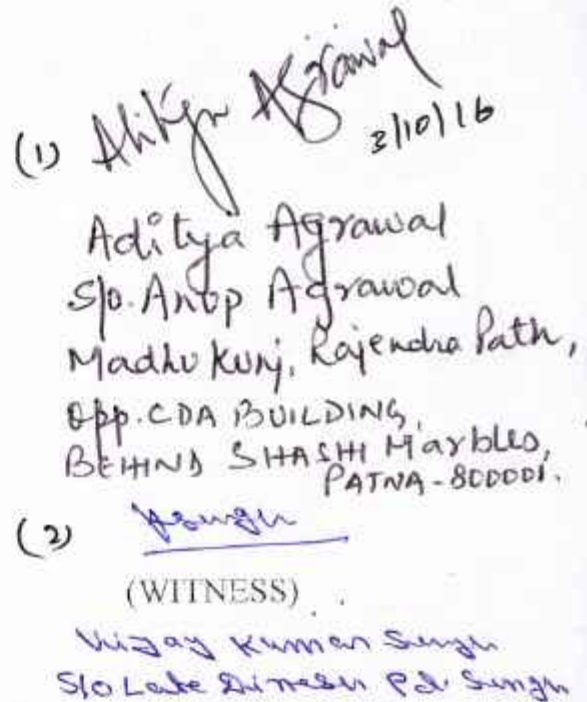 (1) Aditya Agrawal
3/10/16
Aditya Agrawal
S/o. Anop Agrawal
Madhu Kunj, Rajendra Path,
Opp. CDA BUILDING,
BEHIND SHASHI Marbles,
PATNA - 800001.
(2)
(WITNESS)
Vijay Kumar Singh
S/o Late Dinesh Pd. Singh